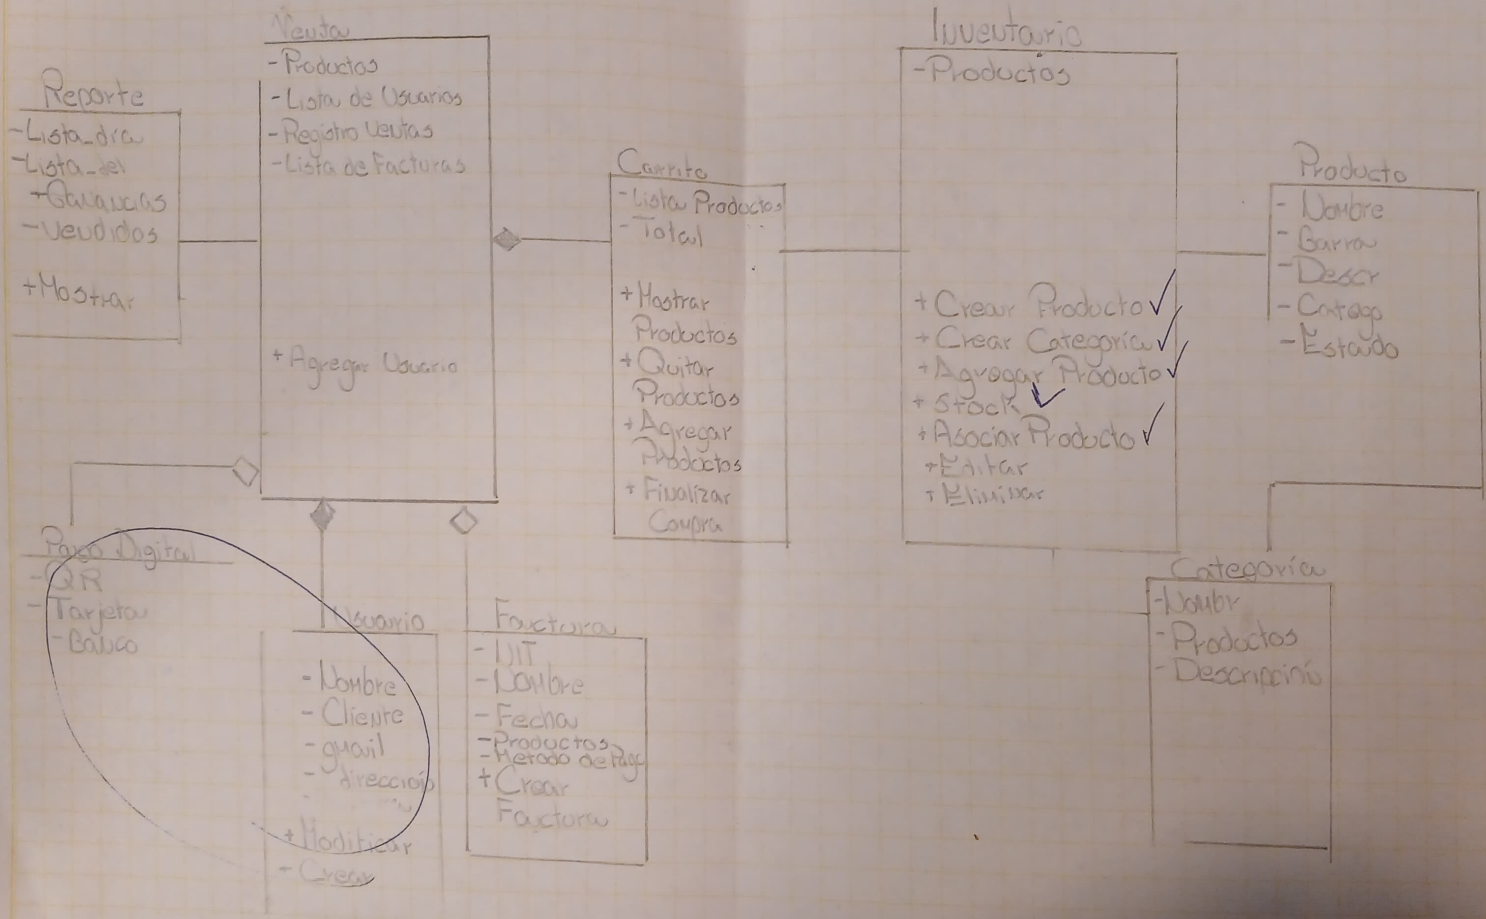 Reporte
-Lista_dia
-Lista_del
+Ganancias
-Vendidos
+Mostrar
Venta
-Productos
-Lista de Usuarios
-Registro Ventas
-Lista de Facturas
+Agregar Usuario
Carrito
-Lista Productos
-Total
+Mostrar
Productos
+Quitar
Productos
+Agregar
Productos
+Finalizar
Compra
Inventario
-Productos
+Crear Producto ✓
+Crear Categoria ✓
+Agregar Producto ✓
+Stock ✓
+Asociar Producto ✓
+Editar
+Eliminar
Producto
-Nombre
-Barra
-Descr
-Catego
-Estado
Pago Digital
-QR
-Tarjeta
-Banco
Usuario
-Nombre
-Cliente
-gmail
-direccion
+Modificar
+Crear
Factura
-NIT
-Nombre
-Fecha
-Productos
-Metodo de Pago
+Crear
Factura
Categoria
-Nombr
-Productos
-Descripcino